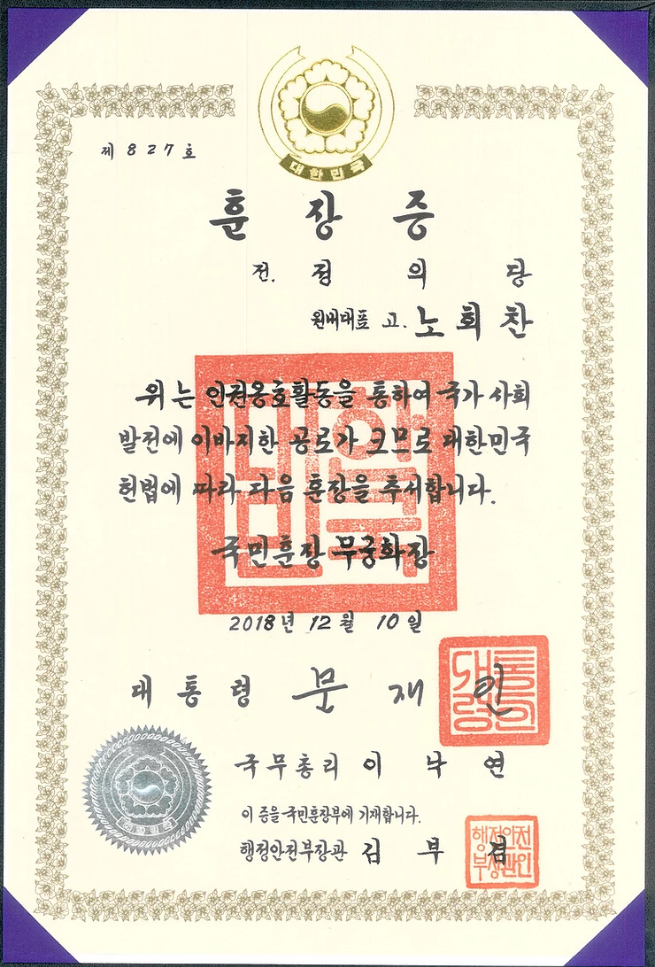 대한민국
제 827 호
훈 장 증
전. 정 의 당
원내대표 고. 노 회 찬
위는 인권옹호활동을 통하여 국가사회
발전에 이바지한 공로가 크므로 대한민국
헌법에 따라 다음 훈장을 추서합니다.
국민훈장 무궁화장
2018년 12월 10일
대 통 령 문 재 인
대통령의인
국무총리 이 낙 연
대한민국
이 증을 국민훈장부에 기재합니다.
행정안전부장관 김 부 겸
행정안전부장관인